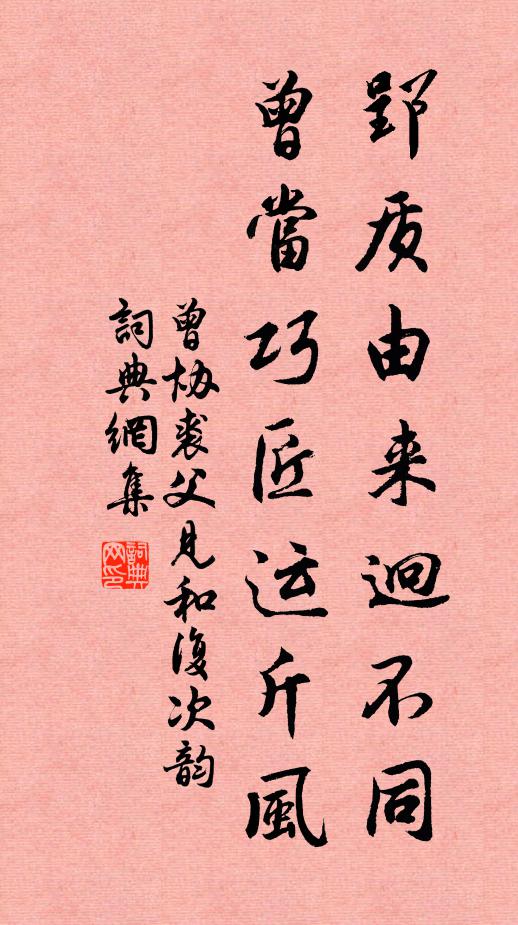 郢质由来迥不同
曾當巧匠运斤風
曾协裘父見和復次韵
詞典網集
詞典网印